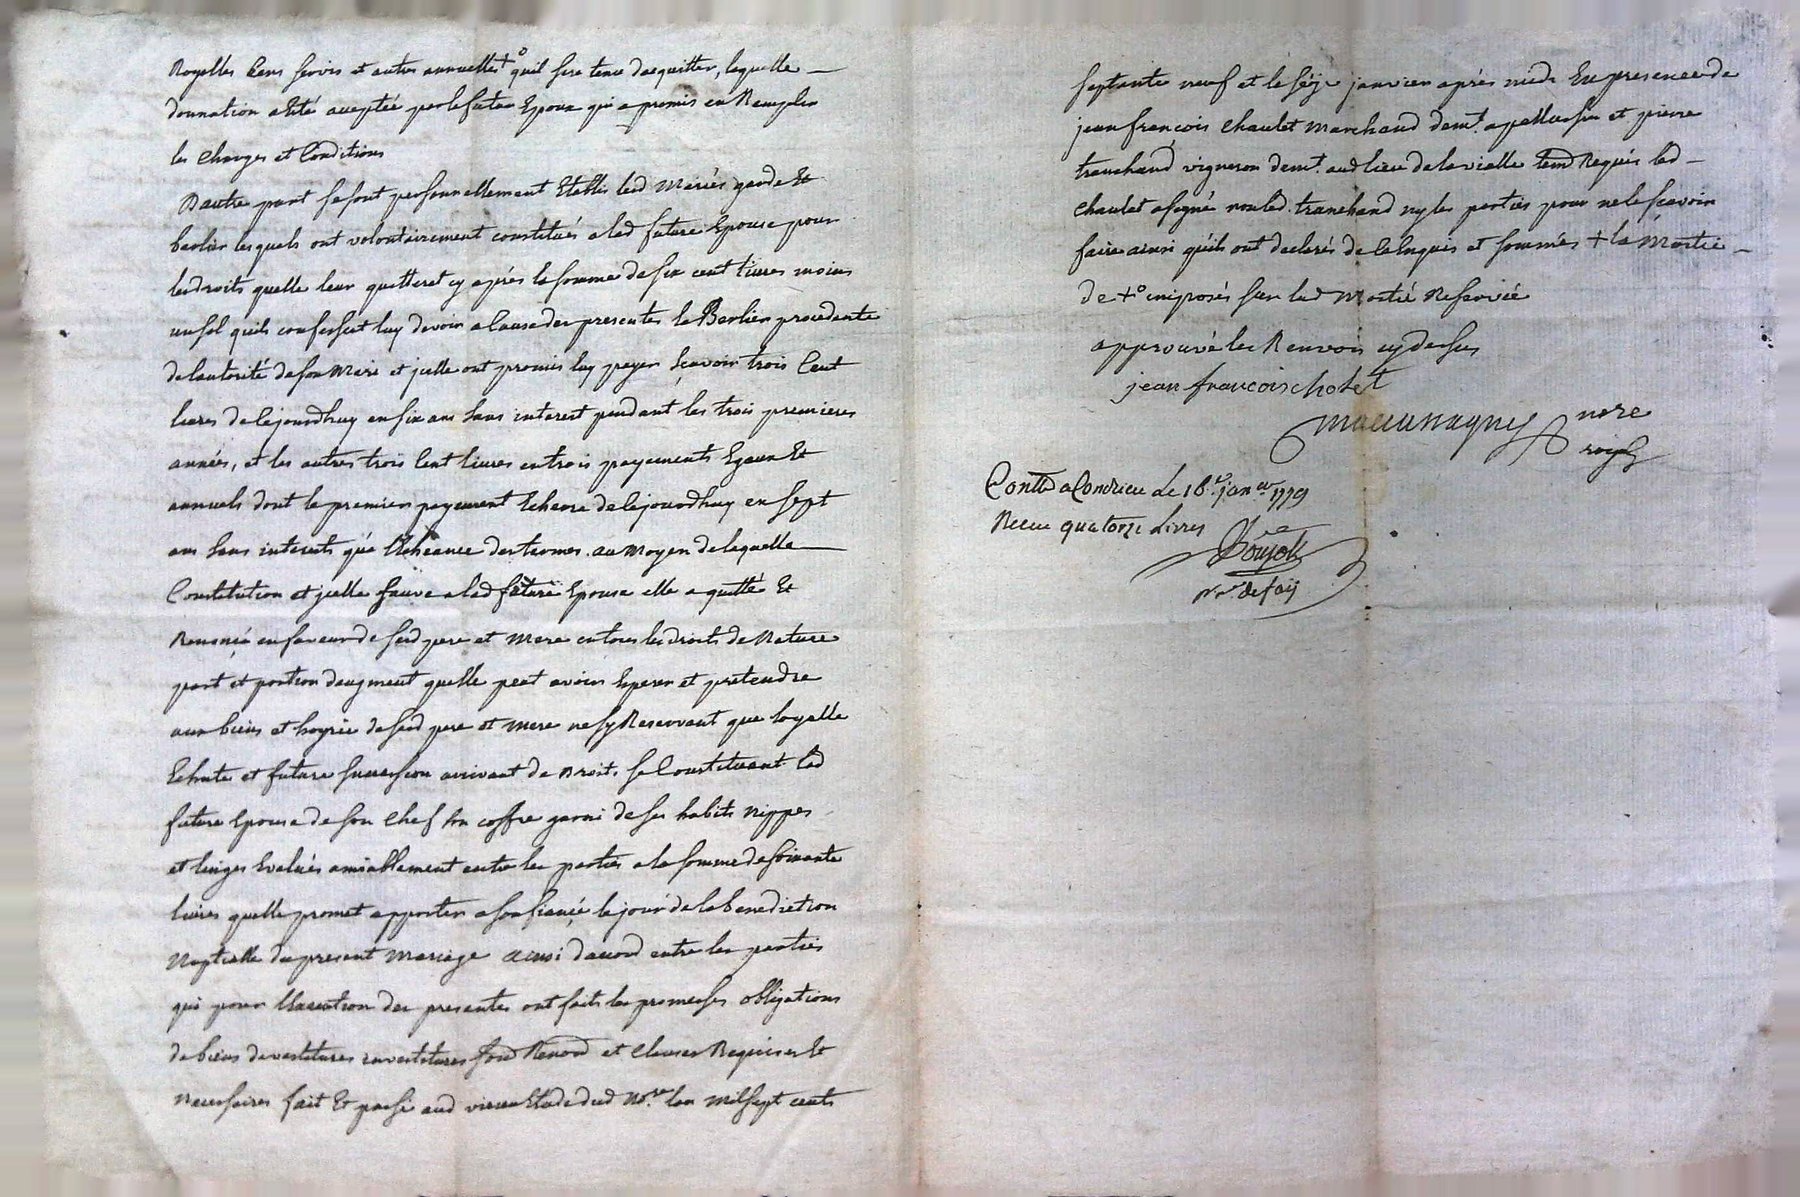 Royelles Cens servis et autres annuelles +° quil sera tenu dacquitter, laquelle
donnation a été aceptée par le futur Epoux qui a promis en Remplir
les Charges et Conditions
Dautre part se sont personnellement Etablis lesd Mariés garde Et
berlier lesquels ont volontairement constitués a lad future Epouse pour
les droits quelle leur quittera cy après la somme de six cent livres moins
un sol quils confessent luy devoir a cause des presentes la Berlier procedante
de lautorité de son Mari et jcelle ont promis luy payer scavoir trois Cent
livres de cejourdhuy en six ans sans interest pendant les trois premieres
années, et les autres trois Cent livres en trois payements Egaux Et
annuels dont le premier payement Echeora de cejourdhuy en sept
ans sans interests qu'a l'Echeance des termes. au Moyen de laquelle
Constitution et jcelle sauve a lad future Epouse elle a quitté Et
Renoncé en faveur de sesd pere et Mere en tous les droits de Nature
part et portion daugment quelle peut avoir Esperer et pretendre
aux biens et hoyrie de sesd pere et mere ne sy Reservant que loyalle
Echute et future succession arrivant de Droit. se Constituant lad
future Epouse de son Chef son coffre garni de ses habits nippes
et linges Evalués amiablement entre les parties a la somme de soixante
livres quelle promet apporter a son fiancé le jour de la benediction
Nuptialle du present Mariage ainsi daccord entre les parties
qui pour l'Execution des presentes ont faits les promesses obligations
de biens devestitures investitures fond Renond et Clauses Requises Et
Necessaires fait Et passé aud vieux Etude dud No.re lan Mil sept cents
septante neuf et le séize janvier après midi En presence de
jean françois Chaulet Marchand demt. a pelussin et pierre
tranchand vigneron demt. aud lieu de la vialle temd Requis led
Chaulet a signé non led. tranchand ny les parties pour ne le scavoir
faire ainsi qu'ils ont declarés de ce Enquis et sommés + la Moitié
de +° imposés sur lad Moitié Reservée
approuvé les Renvois cy dessus
jean francois cholet
nore
royal
Contlé a Condrieu le 18e. janer 1779
Recu quatorze Livres